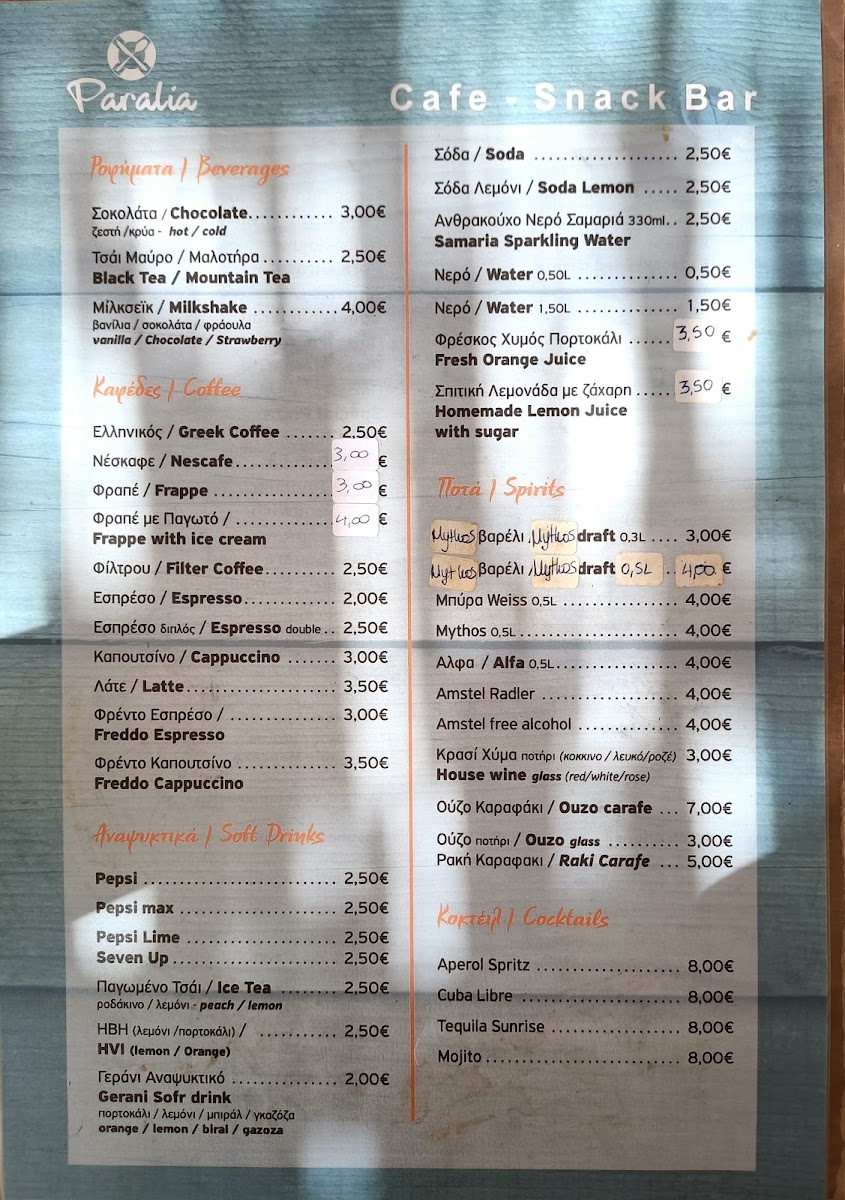 Paralia
Cafe - Snack Bar
Ροφήματα / Beverages
Σοκολάτα / Chocolate............ 3,00€
ζεστή /κρύα - hot / cold
Τσάι Μαύρο / Μαλοτήρα .......... 2,50€
Black Tea / Mountain Tea
Μίλκσεϊκ / Milkshake ............ 4,00€
βανίλια / σοκολάτα / φράουλα
vanilla / Chocolate / Strawberry
Καφέδες / Coffee
Ελληνικός / Greek Coffee ....... 2,50€
Νέσκαφε / Nescafe............. 3,00 €
Φραπέ / Frappe ................ 3,00 €
Φραπέ με Παγωτό / ............. 4,00 €
Frappe with ice cream
Φίλτρου / Filter Coffee.......... 2,50€
Εσπρέσο / Espresso............. 2,00€
Εσπρέσο διπλός / Espresso double .. 2,50€
Καπουτσίνο / Cappuccino ....... 3,00€
Λάτε / Latte..................... 3,50€
Φρέντο Εσπρέσο / ............... 3,00€
Freddo Espresso
Φρέντο Καπουτσίνο ............... 3,50€
Freddo Cappuccino
Αναψυκτικά / Soft Drinks
Pepsi ........................... 2,50€
Pepsi max ....................... 2,50€
Pepsi Lime ...................... 2,50€
Seven Up........................ 2,50€
Παγωμένο Τσάι / Ice Tea ........ 2,50€
ροδάκινο / λεμόνι - peach / lemon
ΗΒΗ (λεμόνι /πορτοκάλι) / ........... 2,50€
HVI (lemon / Orange)
Γεράνι Αναψυκτικό ............... 2,00€
Gerani Sofr drink
πορτοκάλι / λεμόνι / μπιράλ / γκαζόζα
orange / lemon / biral / gazoza
Σόδα / Soda .................... 2,50€
Σόδα Λεμόνι / Soda Lemon ..... 2,50€
Ανθρακούχο Νερό Σαμαριά 330ml.. 2,50€
Samaria Sparkling Water
Νερό / Water 0,50L .............. 0,50€
Νερό / Water 1,50L ............... 1,50€
Φρέσκος Χυμός Πορτοκάλι ...... 3,50 €
Fresh Orange Juice
Σπιτική Λεμονάδα με ζάχαρη ..... 3,50 €
Homemade Lemon Juice
with sugar
Ποτά / Spirits
Mythos βαρέλι / Mythos draft 0,3L .... 3,00€
Mythos βαρέλι / Mythos draft 0,5L .. 4,00 €
Μπύρα Weiss 0,5L ................ 4,00€
Mythos 0,5L ...................... 4,00€
Αλφα / Alfa 0,5L................. 4,00€
Amstel Radler .................... 4,00€
Amstel free alcohol .............. 4,00€
Κρασί Χύμα ποτήρι (κοκκινο / λευκό/ροζέ) 3,00€
House wine glass (red/white/rose)
Ούζο Καραφάκι / Ouzo carafe ... 7,00€
Ούζο ποτήρι / Ouzo glass .......... 3,00€
Ρακή Καραφακι / Raki Carafe ... 5,00€
Κοκτέιλ / Cocktails
Aperol Spritz .................... 8,00€
Cuba Libre ...................... 8,00€
Tequila Sunrise .................. 8,00€
Mojito........................... 8,00€